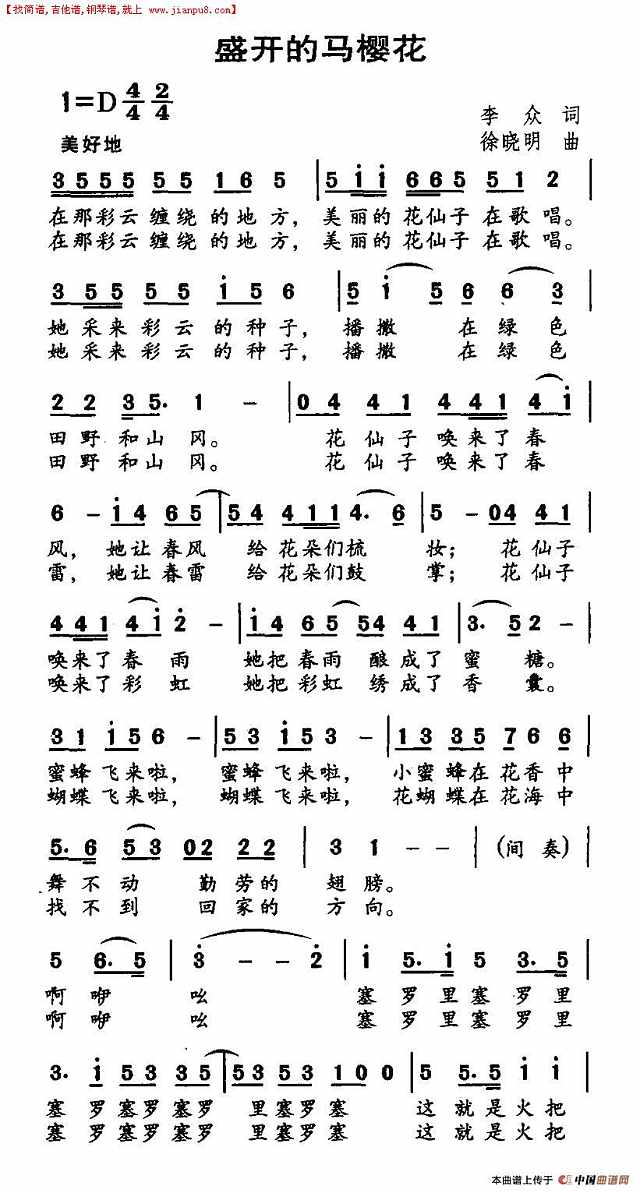 【找简谱,吉他谱,钢琴谱,就上 www.jianpu8.com】
盛开的马樱花
1=D 4/4 2/4
李众 词
美好地
徐晓明 曲
3555 55 1 6 5 | 5 1 1 665 51 2 |
在那彩云缠绕的地方，美丽的花仙子在歌唱。
在那彩云缠绕的地方，美丽的花仙子在歌唱。
3 55 55 1 5 6 | 5 1 5 6 6 3
她采来彩云的种子，播撒 在绿色
她采来彩云的种子，播撒 在绿色
2 2 35. 1 - | 04 41 441 41
田野和山冈。 花仙子唤来了春
田野和山冈。 花仙子唤来了春
6 - 14 65 | 54 411 4. 6 | 5 - 04 41
风，她让春风 给花朵们梳 妆；花仙子
雷，她让春雷 给花朵们鼓 掌；花仙子
441 41 2 - | 14 65 54 41 | 3. 52 - |
唤来了春雨 她把春雨 酿成了蜜 糖。
唤来了彩虹 她把彩虹 绣成了香 囊。
31 156 - | 53 153 - | 1335 766
蜜蜂飞来啦， 蜜蜂飞来啦， 小蜜蜂在花香中
蝴蝶飞来啦， 蝴蝶飞来啦， 花蝴蝶在花海中
5. 6 53 02 2 | 3 1 - - | (间奏) |
舞不动 勤劳的 翅膀。
找不到 回家的 方向。
5 6. 5 | 3 - | - 2 | 1 5. 1 | 3. 5
啊咿 吆 塞罗里塞罗里
啊咿 吆 塞罗里塞罗里
3. 1 53 35 | 5353 100 | 5 5. 5 1 1
塞罗塞罗塞罗 里塞罗塞 这就是火把
塞罗塞罗塞罗 里塞罗塞 这就是火把
本曲谱上传于 中国曲谱网